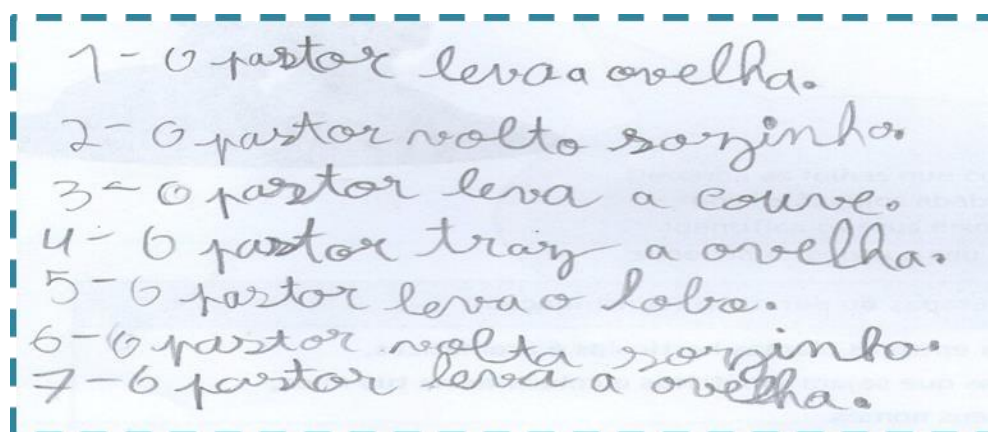 1- O pastor leva a ovelha.
2- O pastor volto sozinho.
3- O pastor leva a couve.
4- O pastor traz a ovelha.
5- O pastor leva o lobo.
6- O pastor volta sozinho.
7- O pastor leva a ovelha.